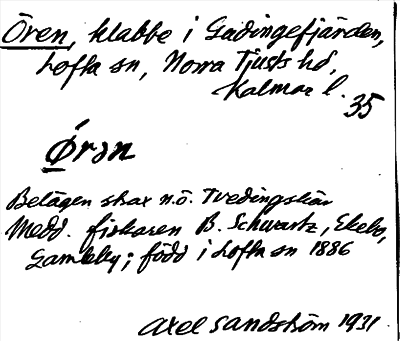 Ören, klabbe i Gudingefjärden,
Lofta sn, Norra Tjusts hd,
Kalmar l.
35
Örən
Belägen strax n.ö. Tvedingskär
Medd. fiskaren B. Schwartz, Ekebo,
Gamleby; född i Lofta sn 1886
Axel Sandström 1931